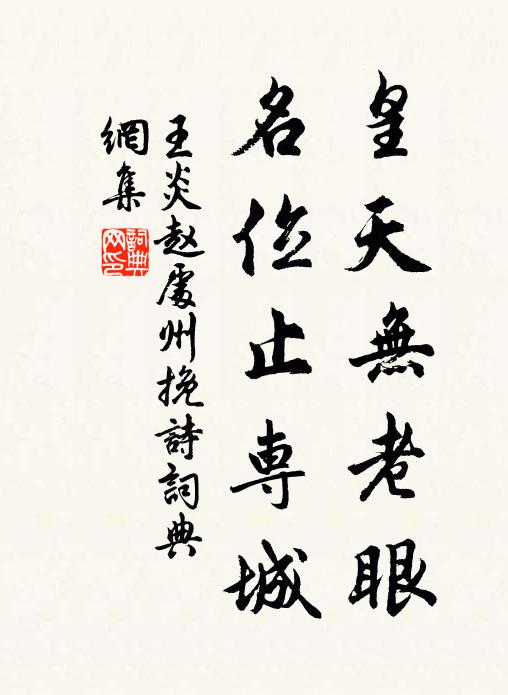 皇天無老眼
名位止專城
王炎赵處州挽詩詞典
網集
詞典
网印